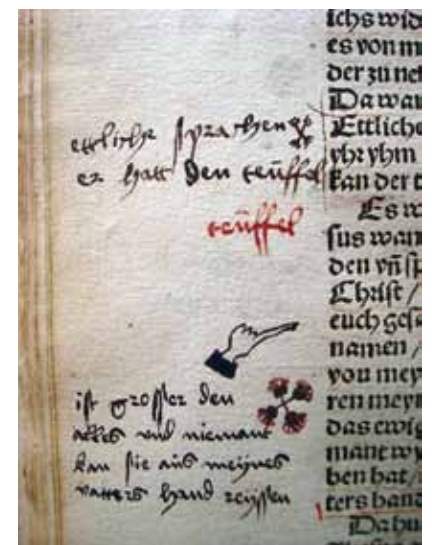 ettliche sprachen
er hatt den teüffel
teüffel
ist grosser den
alles und niemant
kan sie aus meynes
vatters hand reyssen
ichs wid
es von m
der zu ne
Da wa
Ettliche
yhr yhm
kan der t
Es w
sus wan
den vñ sp
Christ /
euch gesa
namen /
von mey
ren mey
das ewig
mant wy
ben hat /
ters hand
Da hu